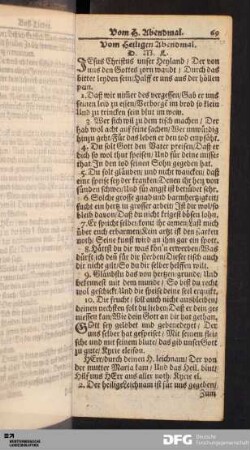 Vom H. Abendmal. 69
Vom Heiligen Abendmal.
D. M. L.
JEsus Christus unser Heyland / Der von
uns den Gottes zorn wandt / Durch das
bitter leyden sein / Halff er uns aus der höllen
pein.
1. Daß wir nimer des vergessen / Gab er uns
seinen leib zu essen / Verborgē im brod so klein
Und zu trincken sein blut im wein.
2. Wer sich wil zu dem tisch machen / Der
hab wol acht auf seine sachen / Wer unwürdig
hinzu geht / Für das leben er den tod empfäht.
4. Du solt Gott den Vater preisen / Daß er
dich so wol thut speisen / Und für deine misse-
that In den tod seinen Sohn gegeben hat.
5. Du solt gläuben und nicht wancken / daß
eine speise sey der krancken / Denen ihr hertz von
sünden schwer / Und für angst ist betrübet sehr.
6. Solche grosse gnad und barmhertzigkeit /
sucht ein hertz in grosser arbeit / Ist dir wol so
bleib davon / Daß du nicht kriegest bösen lohn.
7. Er spricht selber / komt ihr armen / Last mich
über euch erbarmen / Kein artzt ist den starcken
noth / Seine kunst wird an ihm gar ein spott.
8. Hättst du dir was könt erwerben / Was
dürfft ich den für dich sterben / Dieser tisch auch
dir nicht gilt / So du dir selber helffen wilt.
9. Gläubstu das von hertzen grunde / Und
bekennest mit dem munde / So bist du recht
wol geschickt / Und die speise deine seel erquickt.
10. Die frucht / soll auch nicht ausbleiben /
deinen nechsten solt du lieben / Daß er dein ge-
niessen kan / Wie dein Gott an dir hat gethan.
GOtt sey gelobet und gebenedeyet / Der
uns selber hat gespeiset / Mit seinem flei-
sche und mit seinem blute / das gib unser Gott
zu gute / Kyrie eleison.
HErr / durch deinen H. leichnam / Der von
der mutter Maria kam / Und das Heil. blut /
Hilf uns HErr aus aller noth / Kyrie el.
2. Der heilge leichnam ist für uns gegeben /
Zum
DFG
Deutsche
Forschungsgemeinschaft